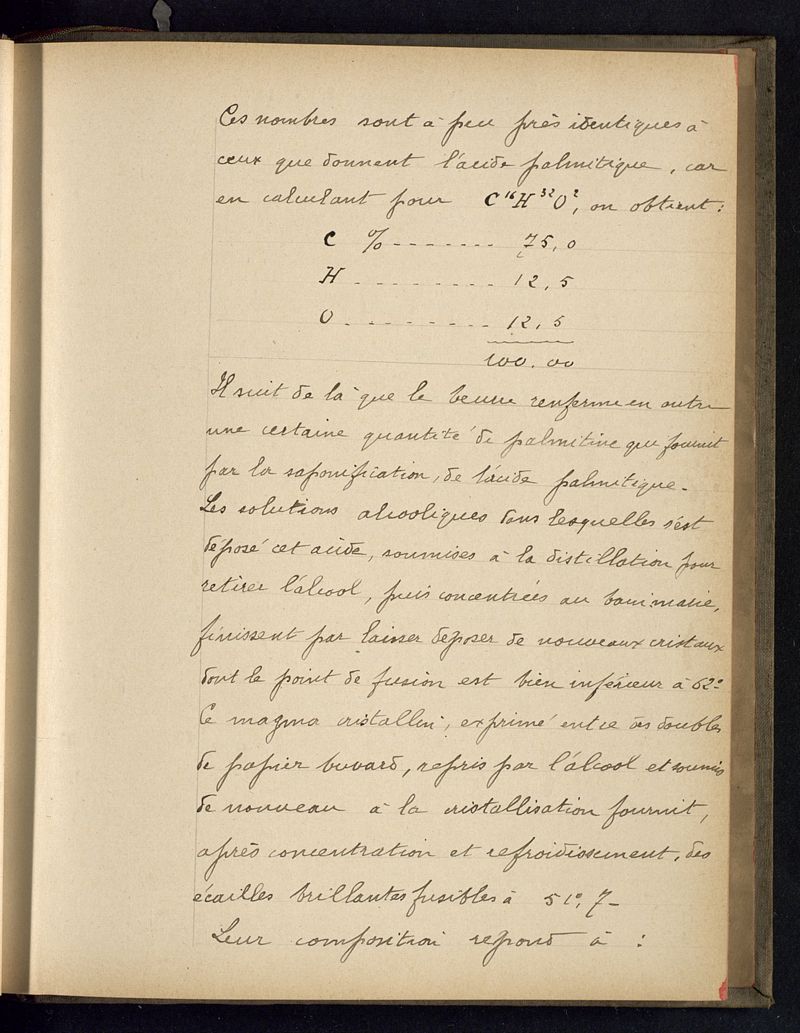 Ces nombres sont à peu près identiques à
ceux que donnent l'acide palmitique, car
en calculant pour C¹⁶H³²O², on obtient :
C % - - - - - - - 75,0
H - - - - - - - - - 12,5
O - - - - - - - - - 12,5
100.00
Il suit de là que le beurre renferme en outre
une certaine quantité de palmitine qui fournit
par la saponification, de l'acide palmitique.
Les solutions alcooliques dans lesquelles s'est
déposé cet acide, soumises à la distillation pour
retirer l'alcool, puis concentrées au bain marie,
finissent par laisser déposer de nouveaux cristaux
dont le point de fusion est bien inférieur à 62°-
Ce magma cristallin, exprimé entre des doubles
de papier buvard, repris par l'alcool et soumis
de nouveau à la cristallisation fournit,
après concentration et refroidissement, des
écailles brillantes fusibles à 51°,7-
Leur composition répond à :